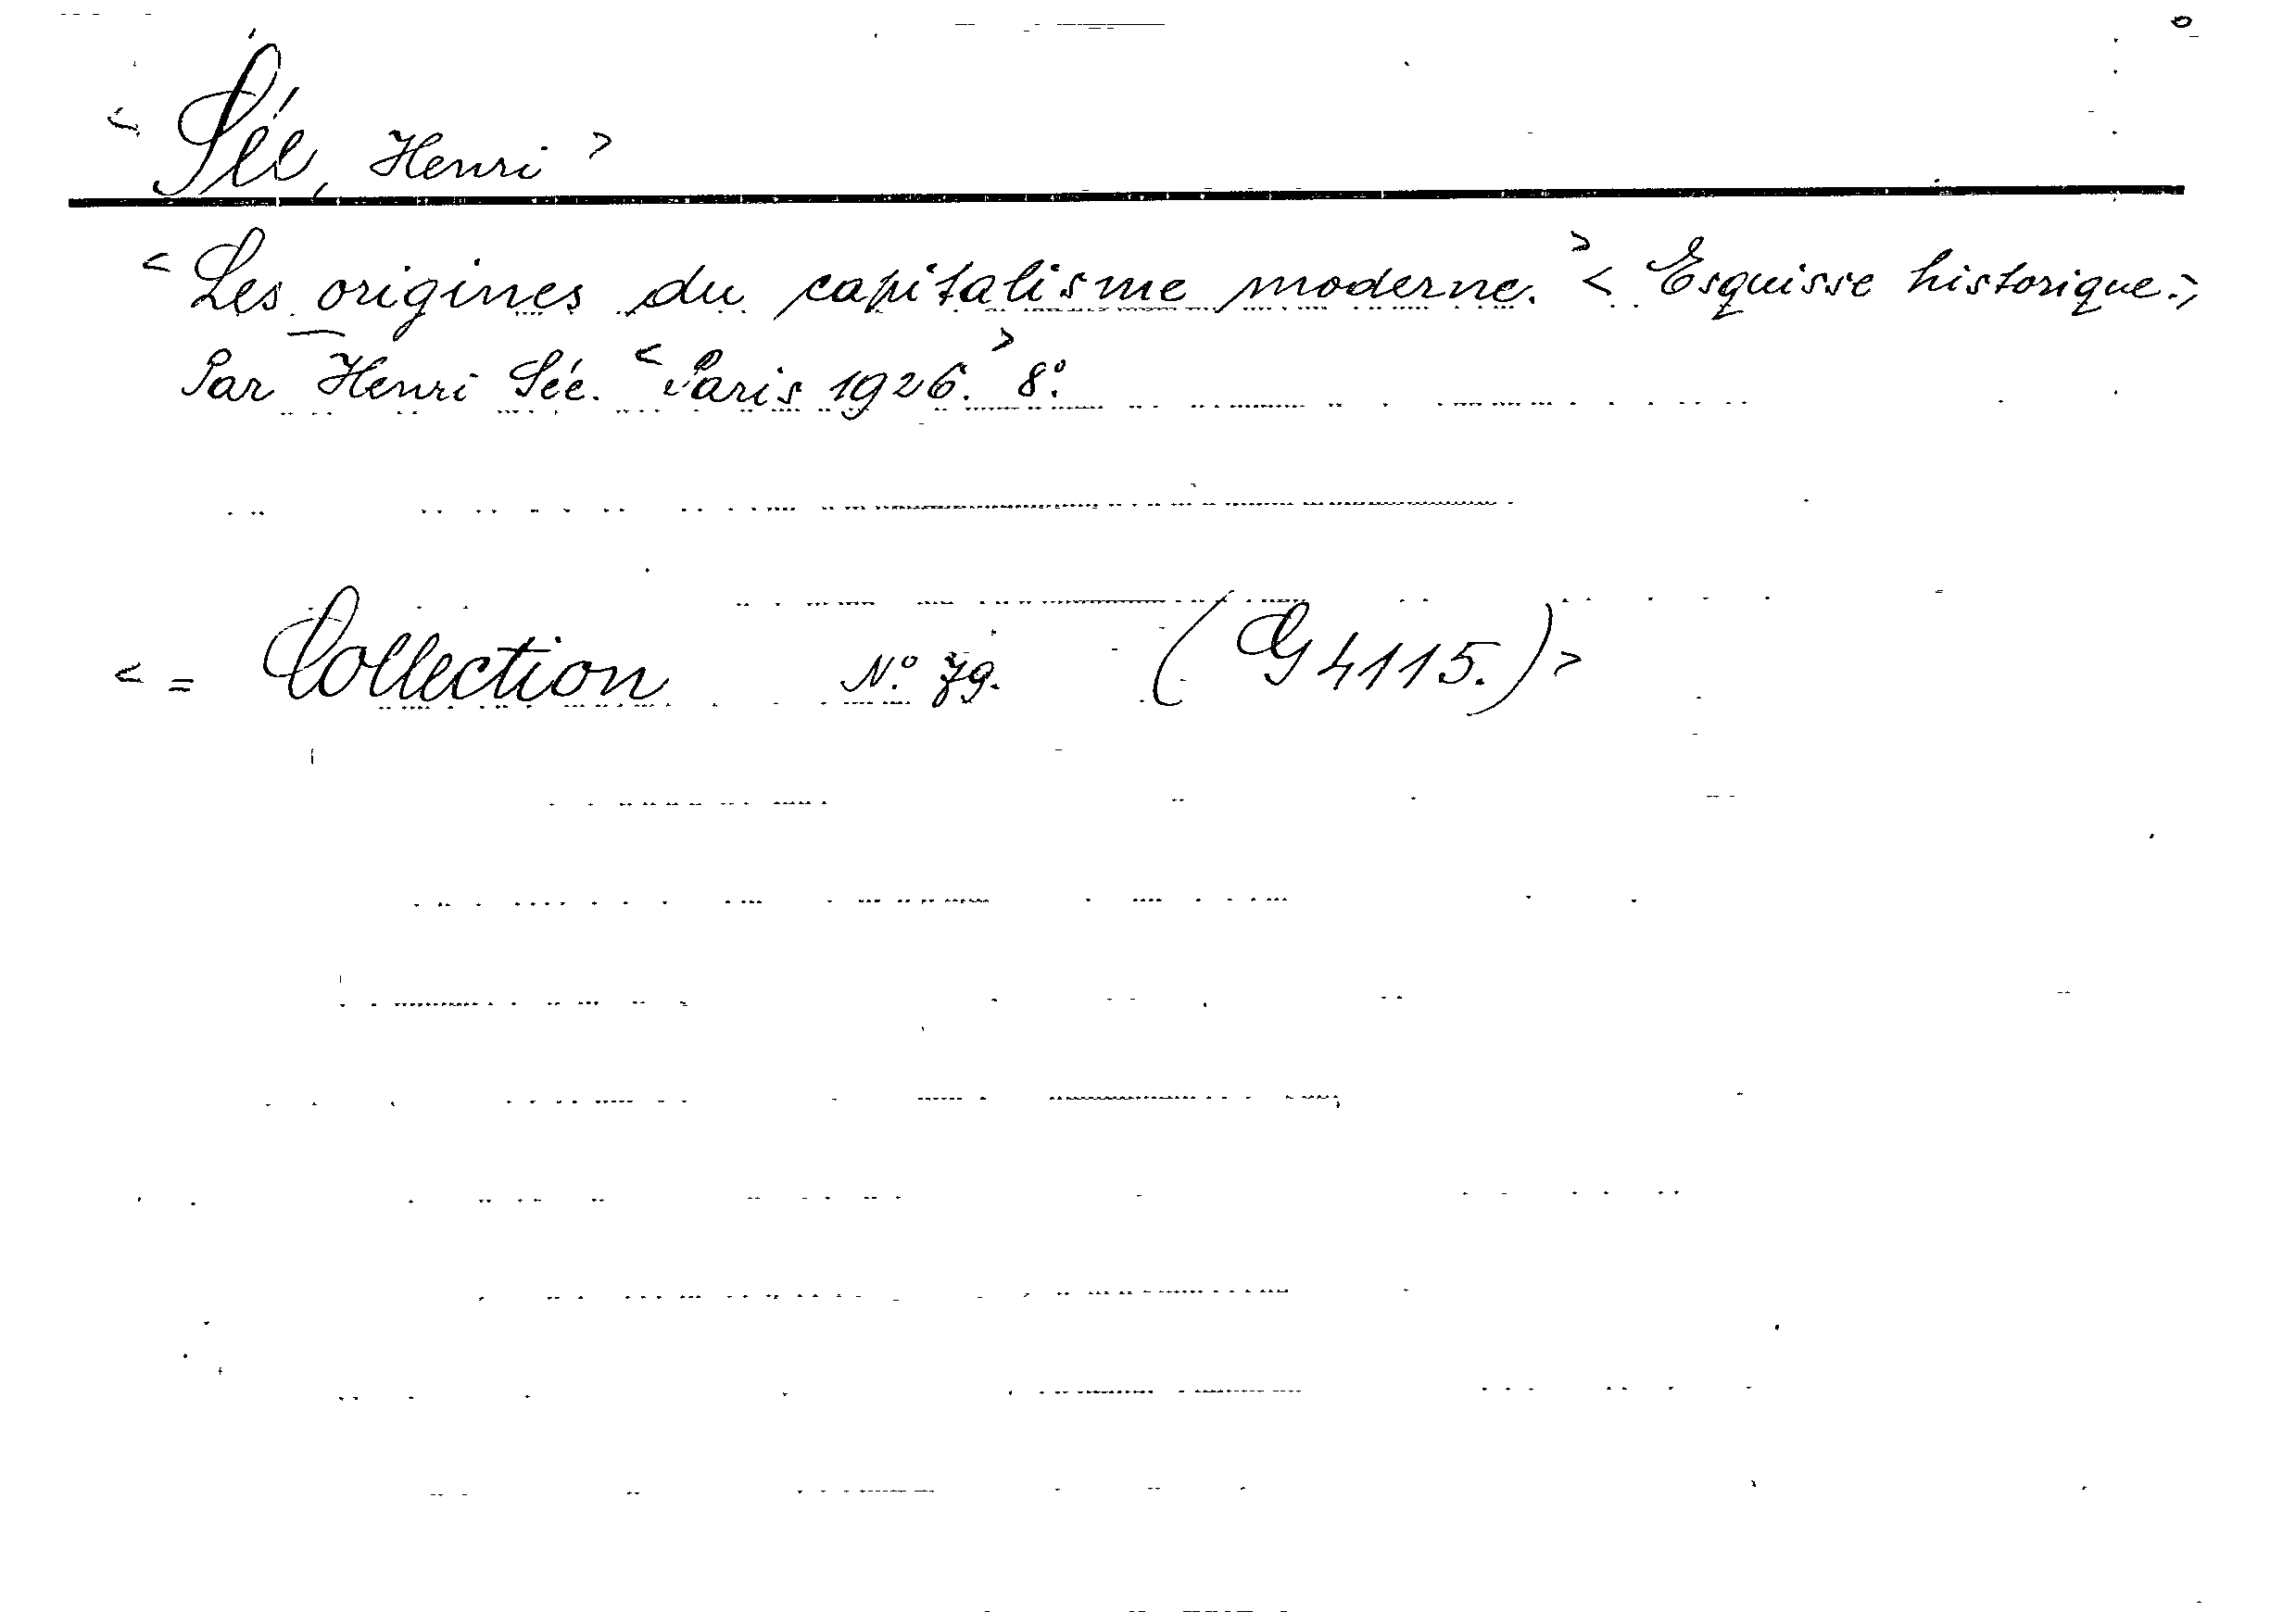 < Sée, Henri >
< Les origines du capitalisme moderne. > < Esquisse historique. >
Par Henri Sée. < Paris 1926. > 8°.
< = Collection N° 79. (G 4115.) >